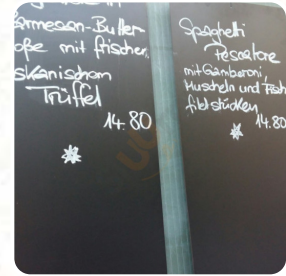 Parmesan-Butter
oße mit frischen
skanischem
Trüffel
14.80
Spaghetti
Pescatore
mit Gamberoni,
Muscheln und Fisch
filetstücken
14.80